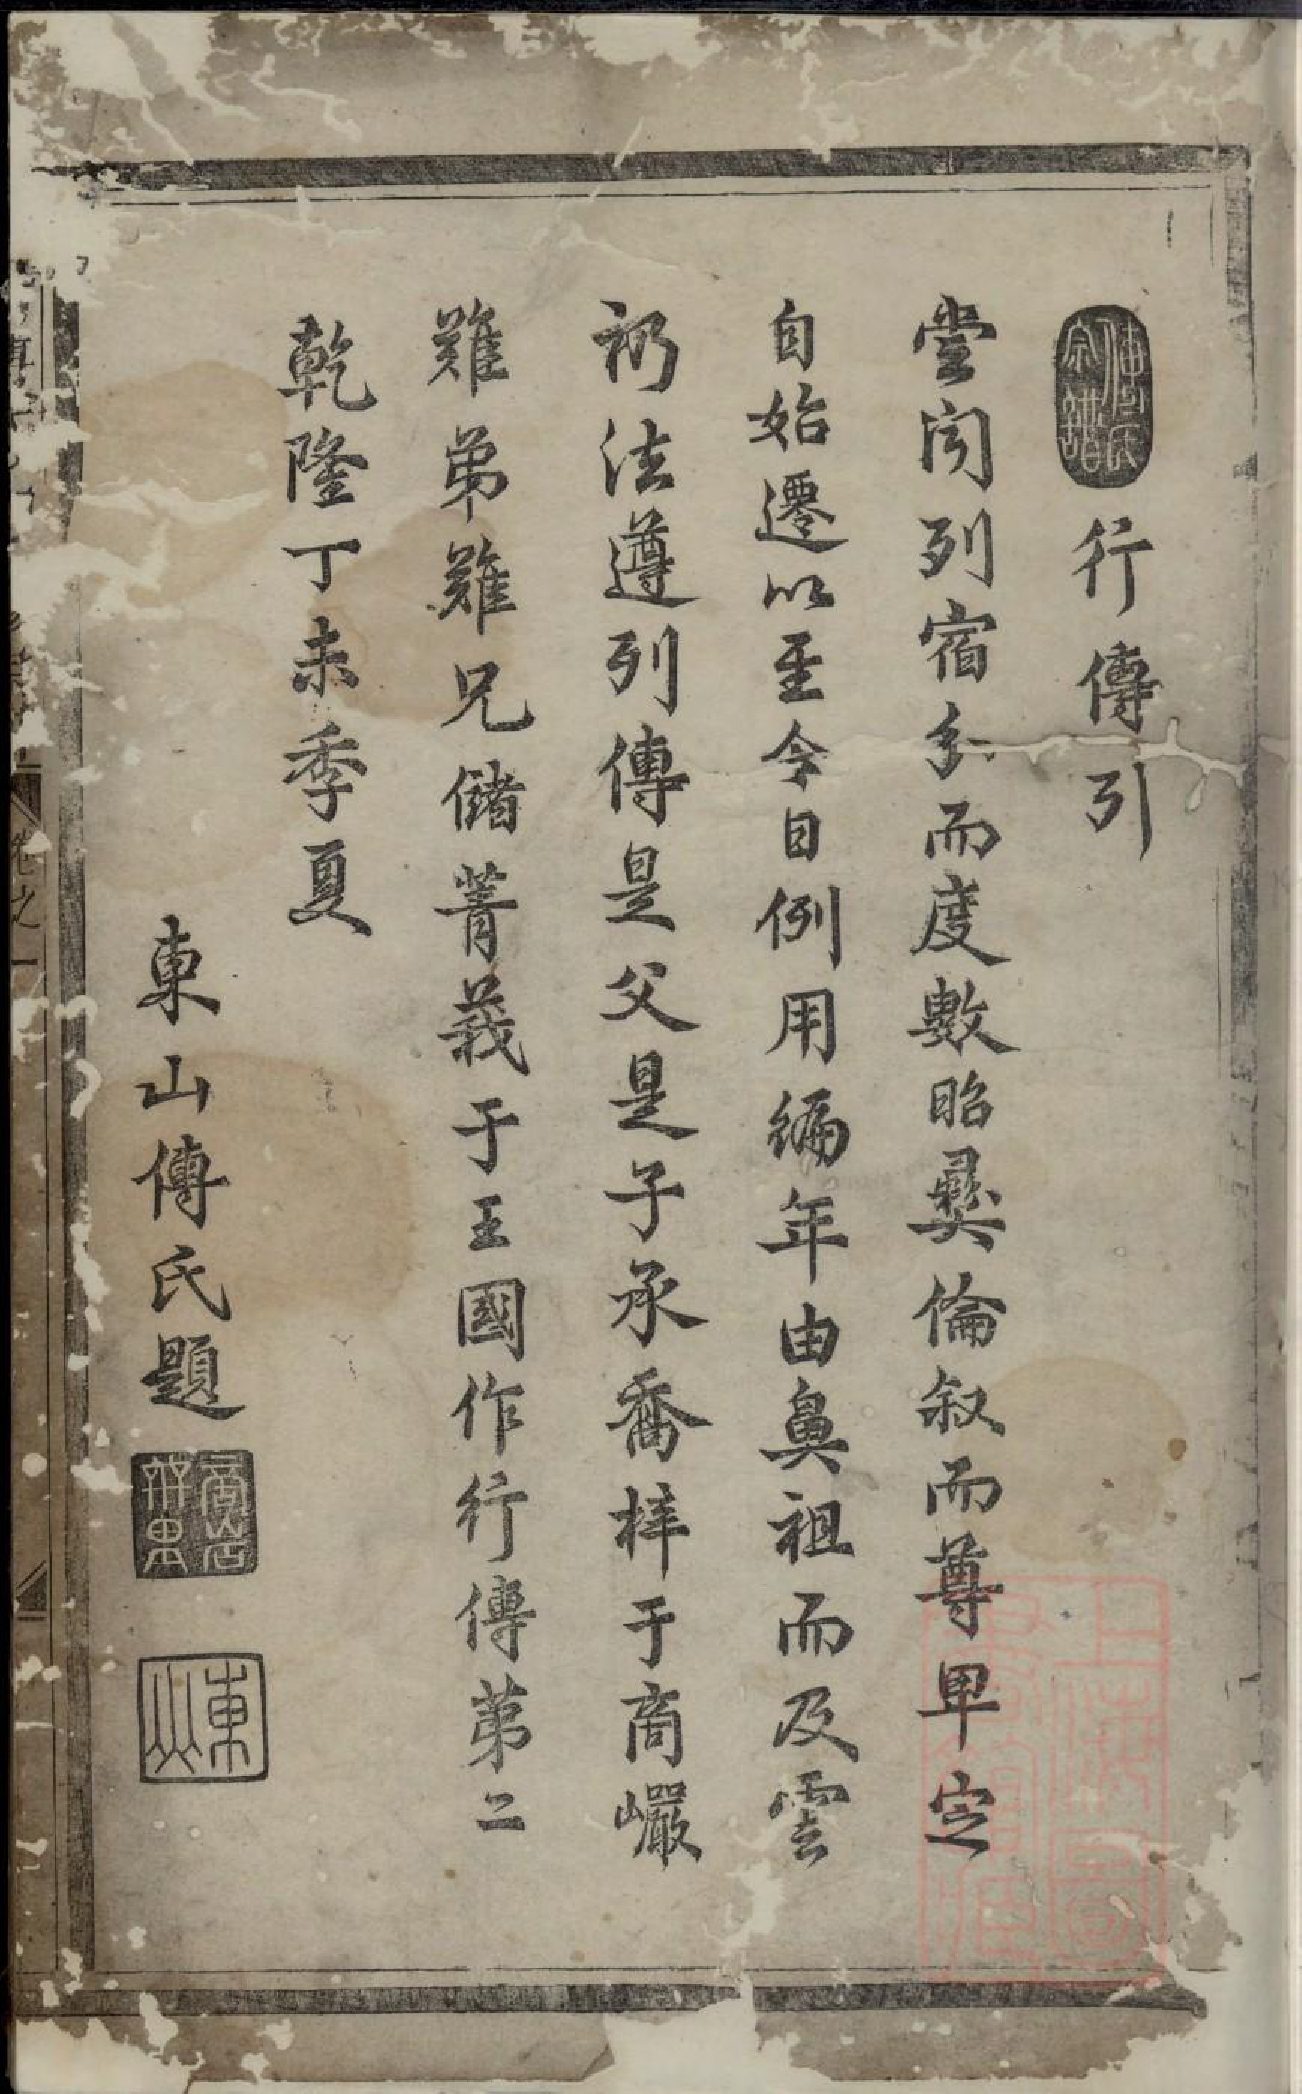 傅氏宗譜
行傳引
嘗聞列宿分而度數昭彝倫叙而尊卑定
自始遷以至今目例用編年由鼻祖而及雲
礽法遵列傳是父是子承喬梓于商巖
難弟難兄儲菁莪于王國作行傳第二
乾隆丁未季夏
東山傅氏題
東山
上海圖書館藏
卷之一